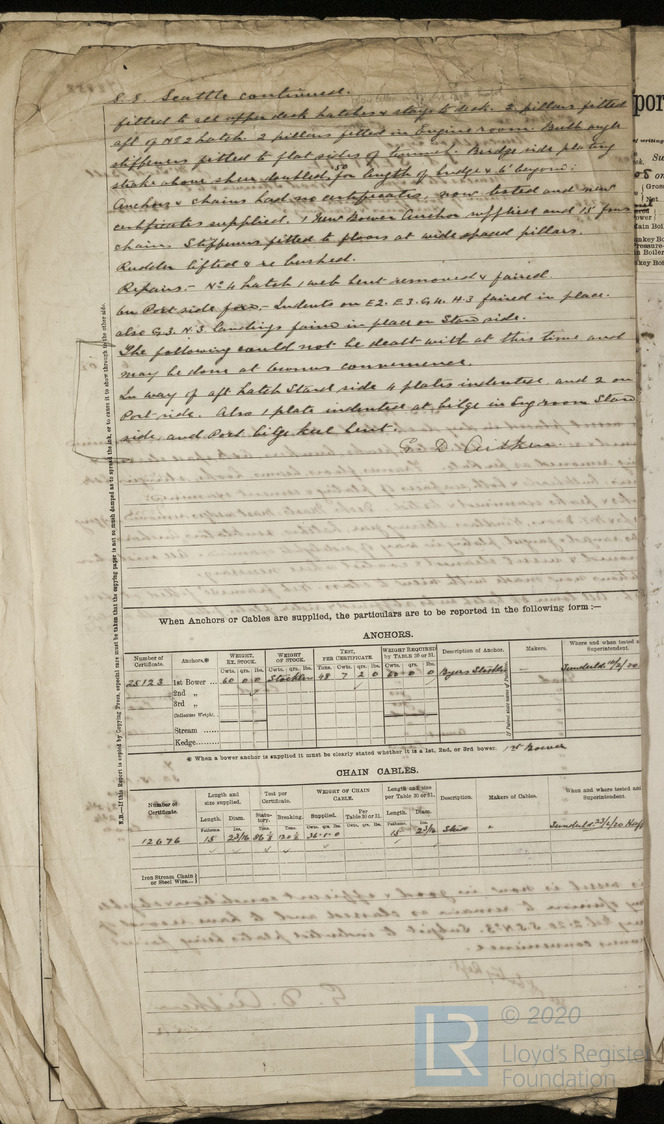 S.S. Seattle continued.
fitted to all upper deck hatches & stays to desk. 2 pillars fitted
aft of No 2 hatch. 2 pillars fitted in Engine room Bulb angle
stiffeners fitted to flat sides of tunnel. Bridge side plating
strake above sheer doubled for length of bridge & beyond:
Anchors & chains had no certificates, now tested and new
certificates supplied. 1 New Bower Anchor supplied and 15 fms
chain. Stiffeners fitted to floors at wide spaced pillars.
Rudder lifted & re bushed.
Repairs:- No 4 hatch 1 web bent removed & faired.
on Port side - Indents on E2. E3. G4. H.3 faired in place.
also G.3. N.3 landings faired in place on Starbd side.
The following could not be dealt with at this time and
may be done at owners convenience.
In way of aft hatch Starbd side 4 plates indented, and 2 on
Port side. Also 1 plate indented at bilge in Eng room Starbd
side, and Port bilge keel bent.
G. D. Aitken
When Anchors or Cables are supplied, the particulars are to be reported in the following form :—
ANCHORS.
Number of Certificate. Anchors.* WEIGHT, EX. STOCK. WEIGHT OF STOCK. TEST, PER CERTIFICATE. WEIGHT REQUIRED by TABLE 30 or 31. Description of Anchor. Makers. Where and when tested
Superintendent.
Cwts. qrs. lbs. Cwts. qrs. lbs. Tons. Cwts. qrs. lbs. Cwts. qrs. lbs.
25123 1st Bower ... 60 0 0 Stockless 48 7 2 0 60 0 0 Byers Stockless — Sunderld 10/2/20
2nd „
3rd „
Collective Weight.
Stream
Kedge
* When a bower anchor is supplied it must be clearly stated whether it is a 1st, 2nd, or 3rd bower. 1st Bower
CHAIN CABLES.
Number of Certificate. Length and size supplied. Test per Certificate. WEIGHT OF CHAIN CABLE. Length and size per Table 30 or 31. Description. Makers of Cables. Where and where tested
Superintendent.
Length. Diam. Statutory. Breaking. Supplied. Per Table 30 or 31. Length. Diam.
Fathoms. Ins. Tons. Tons. Cwts. qrs. lbs. Cwts. qrs. lbs. Fathoms. Ins.
12676 15 2 3/16 36-0-0 15 2 3/16 Stud „ Sunderld
Iron Stream Chain or Steel Wire...
N.B.—If this Report is copied by Copying Press, especial care must be taken that the copying paper is not so much damped as to spread the ink, or to cause it to show through to the other side.
© 2020
LR
Lloyd's Register
Foundation